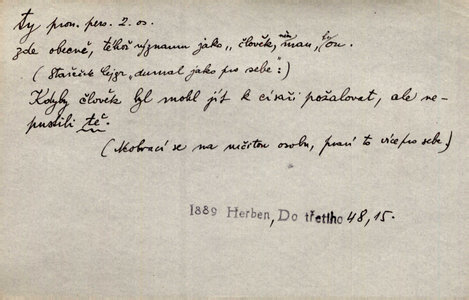 ty pron. pers. 2. os.
zde obecně, téhož významu jako „člověk, man, on.
(Stařeček Cejzr „dumal jako pro sebe":)
Kdyby člověk byl mohl jít k císaři požalovat, ale ne-
pustili tě.
(Neobrací se na určitou osobu, praví to více pro sebe.)
1889 Herben, Do třetího 48, 15.